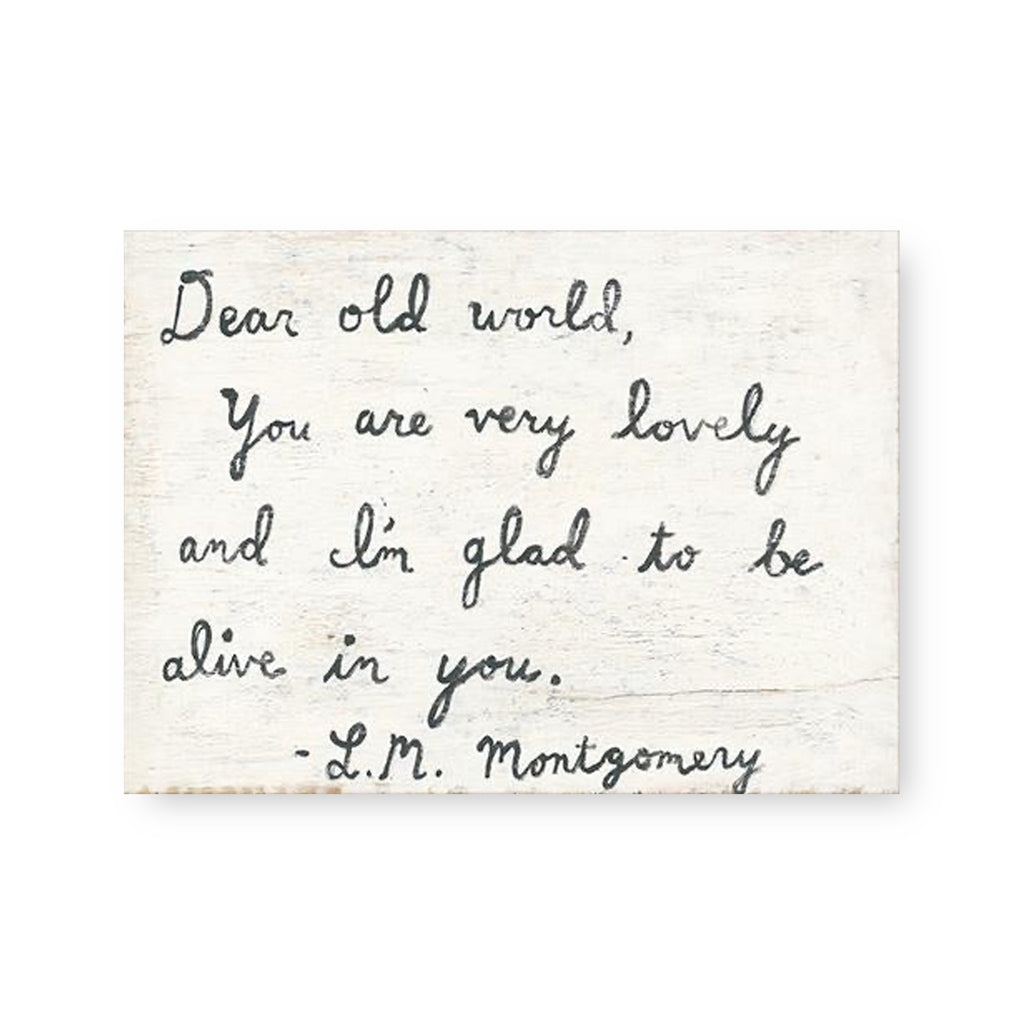 Dear old world,
You are very lovely
and I'm glad to be
alive in you.
- L.M. Montgomery